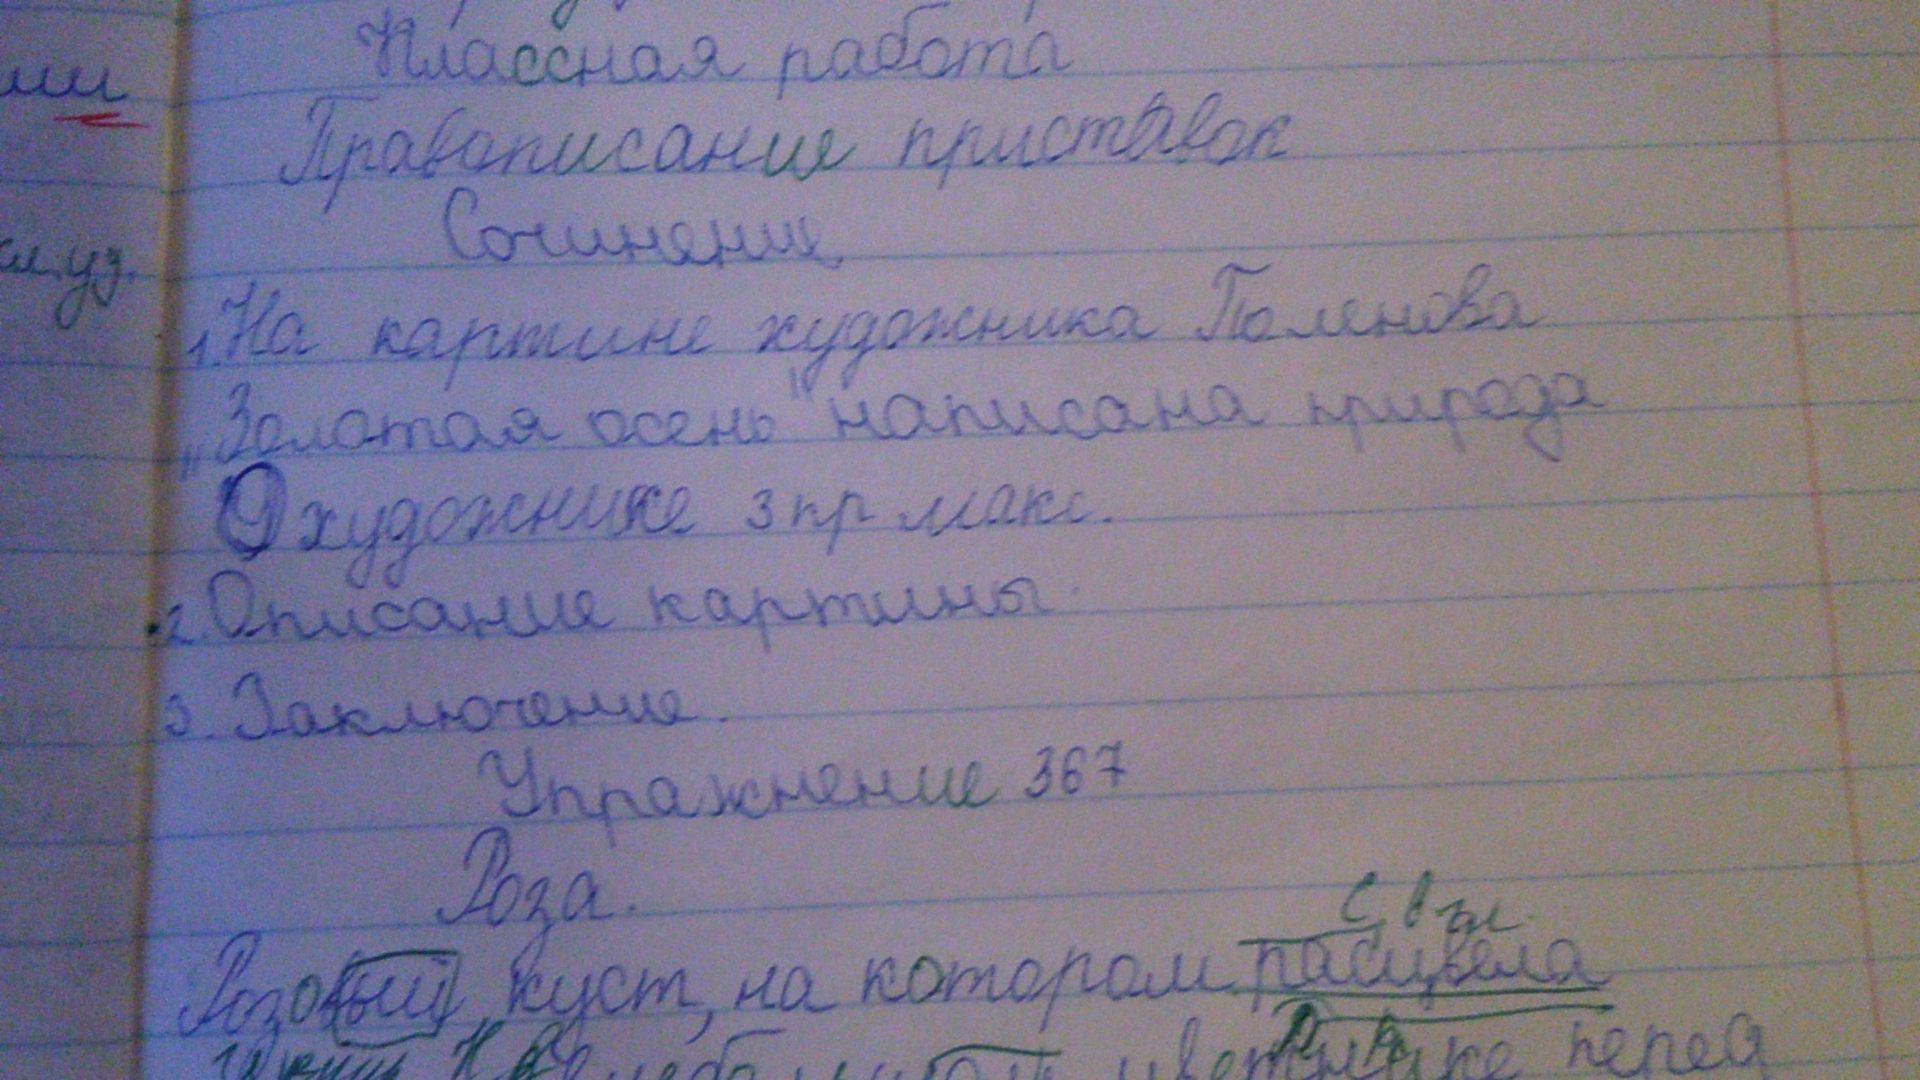 Классная работа
ии
Правописание приставок
Сочинение
уд.
1. На картине художника Поленова
„Золотая осень" написана природа
О художнике 3 пр макс.
2. Описание картины.
3. Заключение.
Упражнение 367
Роза.
С, в гл.
Розовый куст, на котором расцвела
цветнике перед